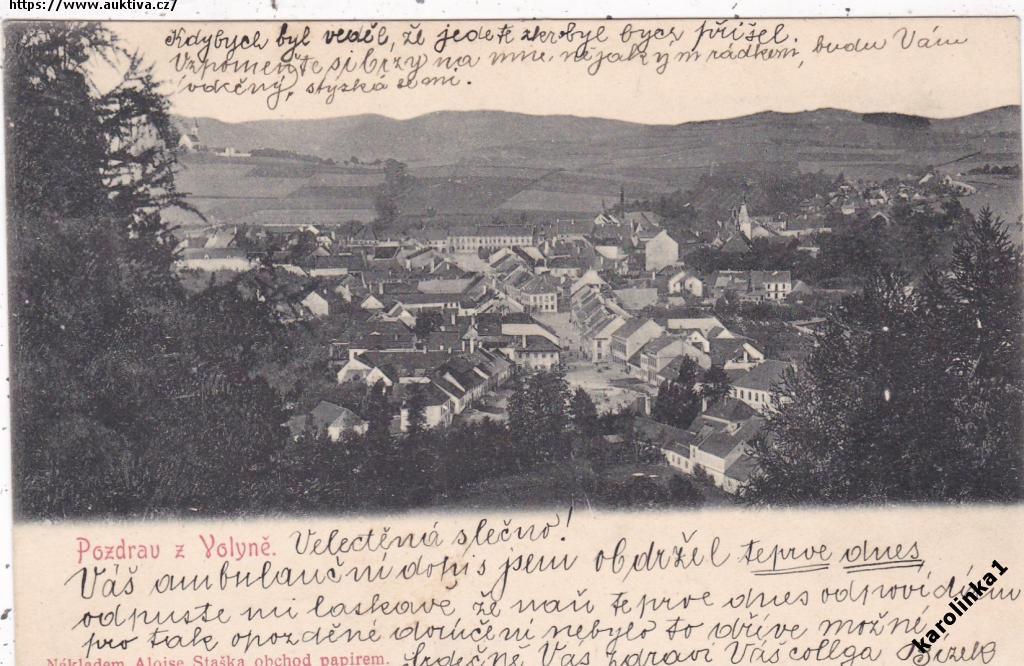 https://www.auktiva.cz7
Kdybych byl veděl, že jedete zkrbyl bych přišel.
Vzpomeňte si brzy na mne nějakým rádkem, budu Vám
vděčný, stýská se mi.
Pozdrav z Volyně. Velectěná slečno!
Váš ambulanční dopis jsem obdržel teprve dnes
odpuste mi laskavě že naň teprve dnes odpovídám
pro tak opozděné doručení nebylo to dříve možné
Nákladem Aloise Staška obchod papírem. Srdečně Vás zdraví Váš collga
karolinka1